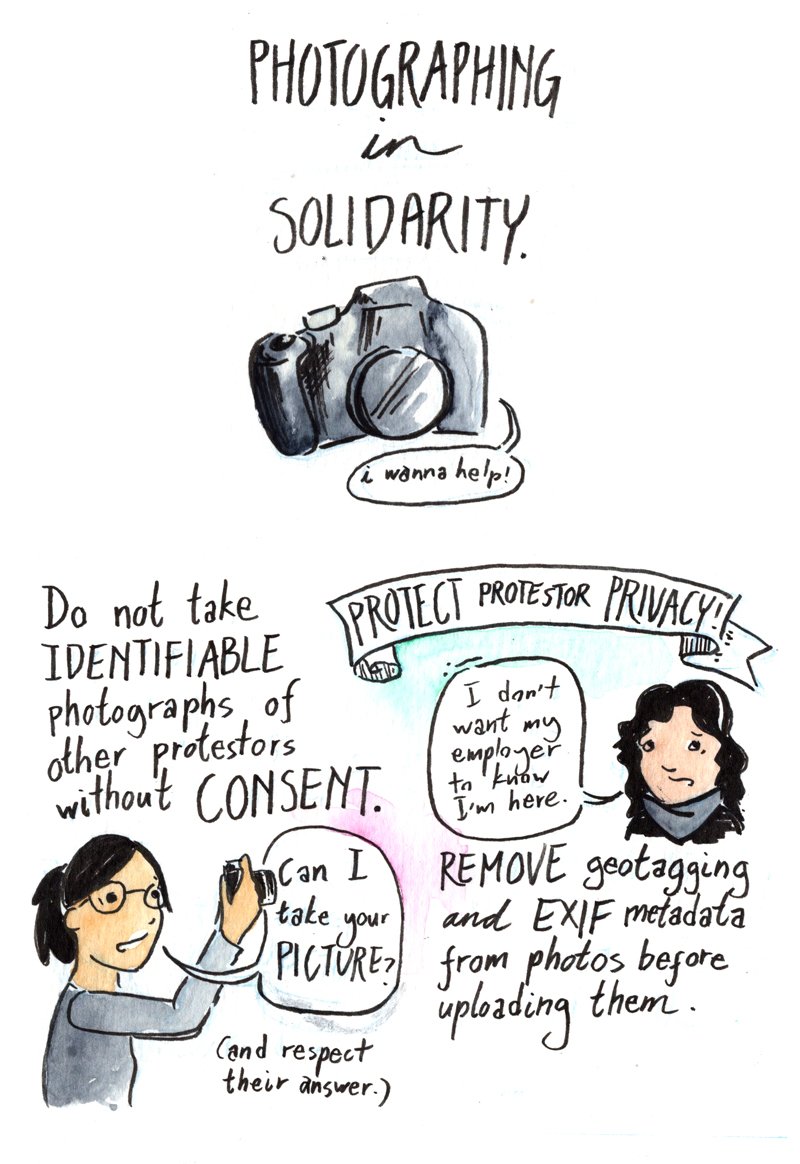 PHOTOGRAPHING
in
SOLIDARITY.
i wanna help!
Do not take
IDENTIFIABLE
photographs of
other protestors
without CONSENT.
Can I
take your
PICTURE?
(and respect
their answer.)
PROTECT PROTESTOR PRIVACY!
I don't
want my
employer
to know
I'm here.
REMOVE geotagging
and EXIF metadata
from photos before
uploading them.